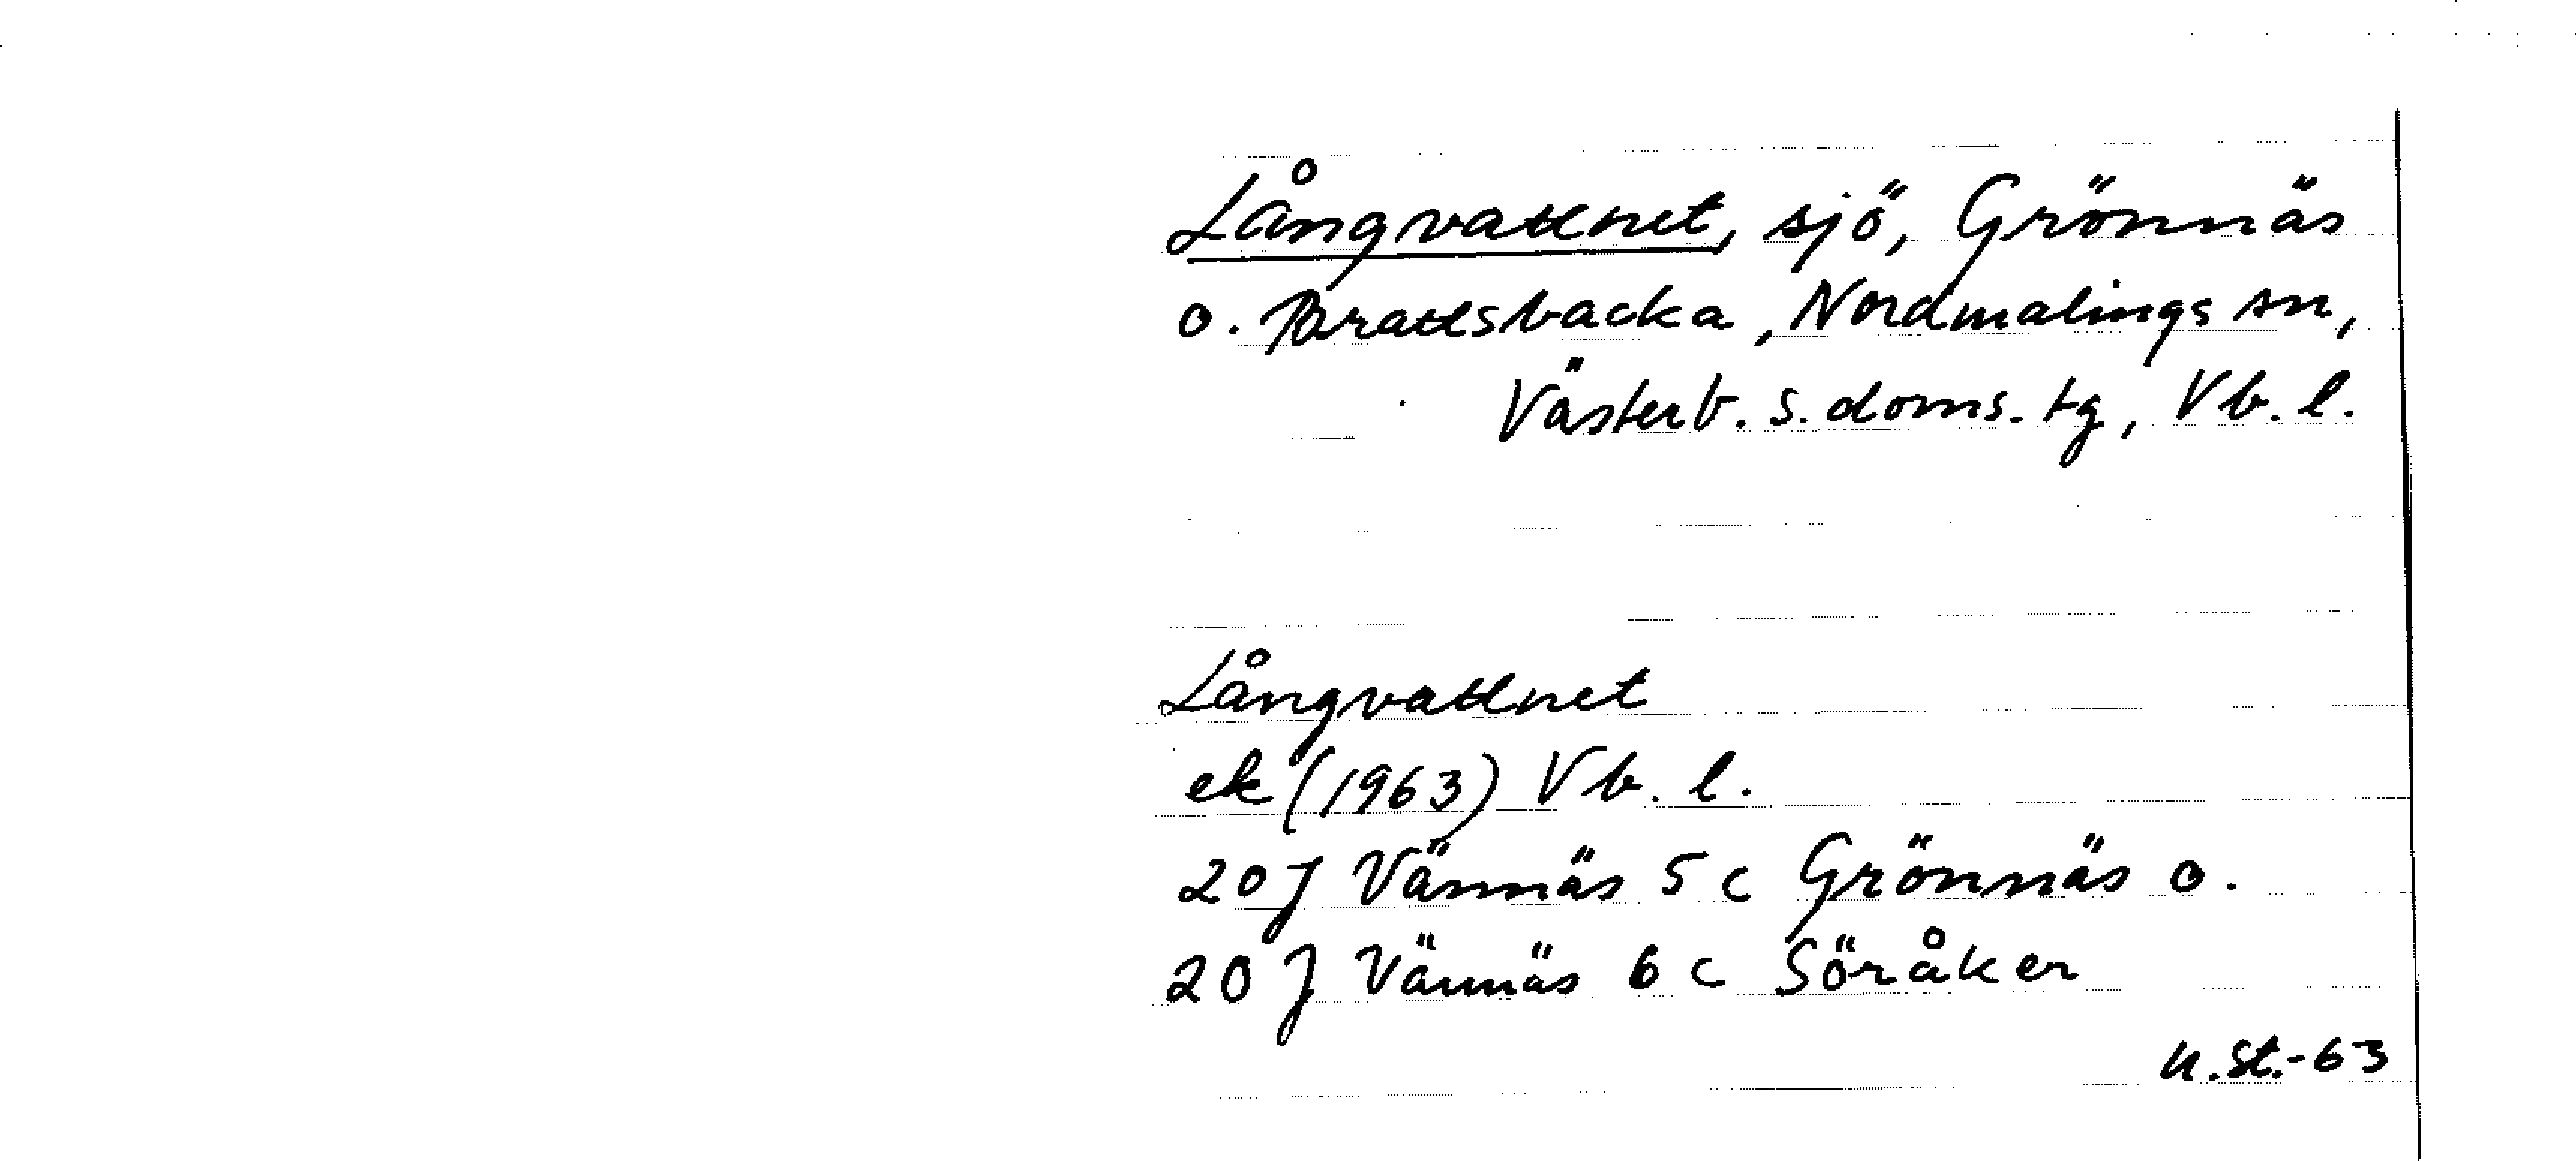 Långvattnet, sjö, Grönnäs
o. Brattsbacka, Nordmalings sn,
Västerb. s. doms. tg, Vb. l.
Långvattnet
ek (1963) Vb. l.
20 J Vännäs 5 c Grönnäs o.
20 J Vännäs 6 c Söråker
u.st.-63